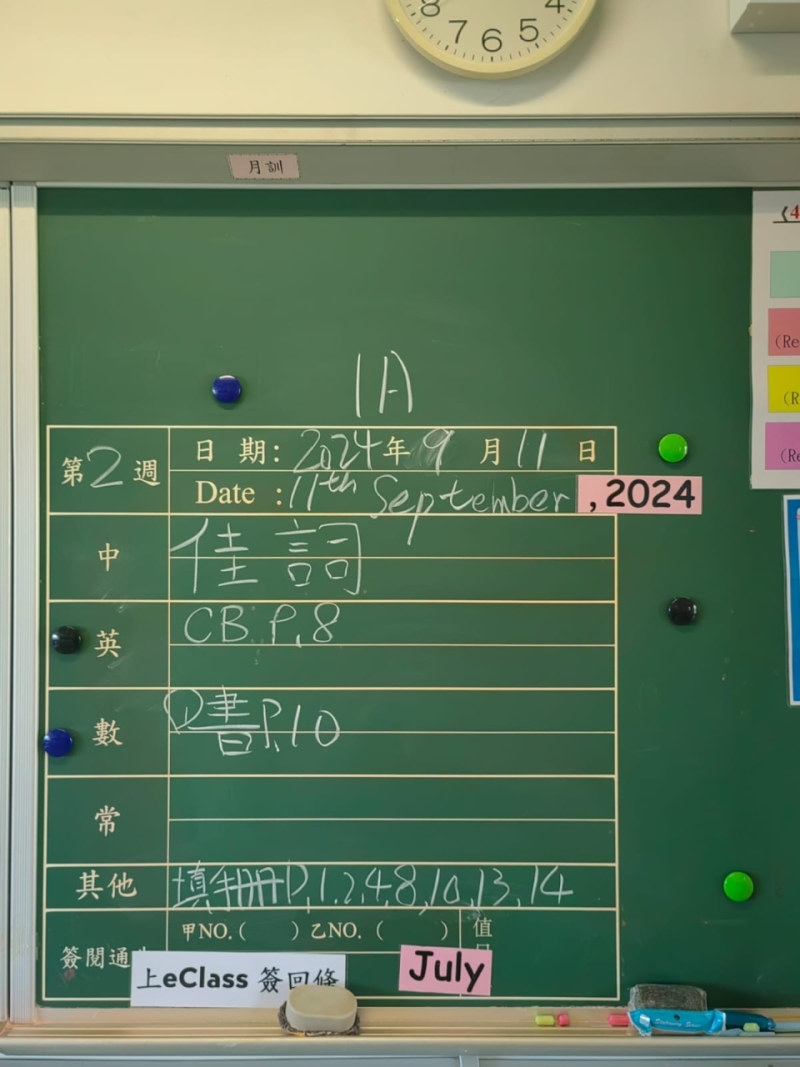 8 7 6 5 4
月訓
《4
(Re
(R
(Re
1A
第2週
日期：2024年9月11日
Date : 11th September , 2024
中 佳詞
英 CB P.8
數 ①書P.10
常
其他 填手冊P.1,2,4,8,10,13,14
簽閱通
甲NO.( ) 乙NO. ( ) 值
上eClass 簽回條
July